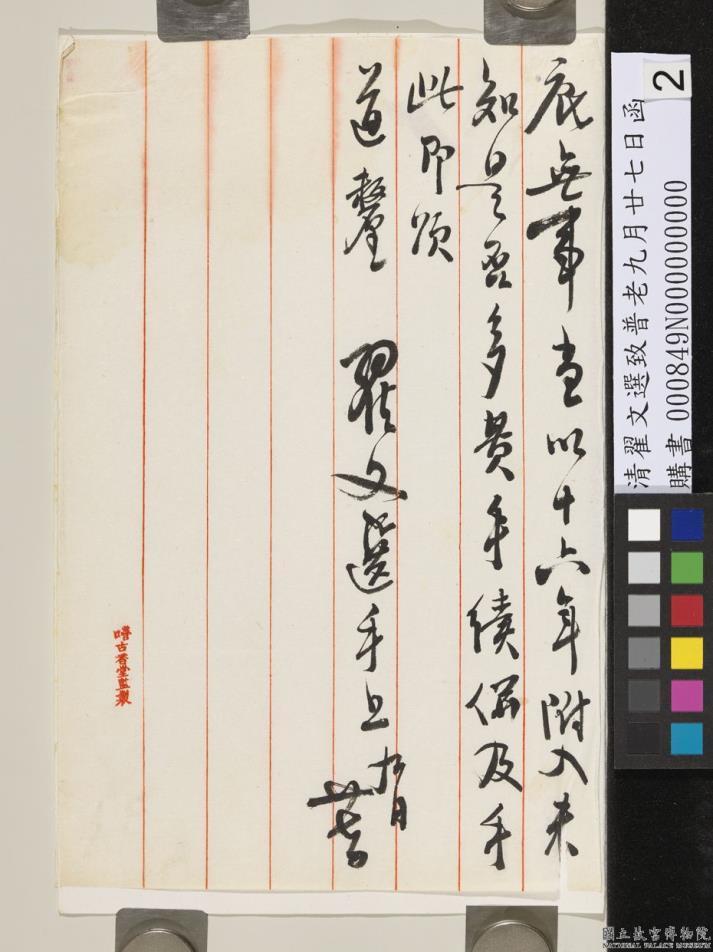 底無軍書以十六年附入未
知是否多貴手續係及手
此即頌
道釐 翟文選手上 九月
廿七日
嗜古香堂監製
2
清翟文選致普老九月廿七日函
購書 000849N000000000
國立故宮博物院
NATIONAL PALACE MUSEUM